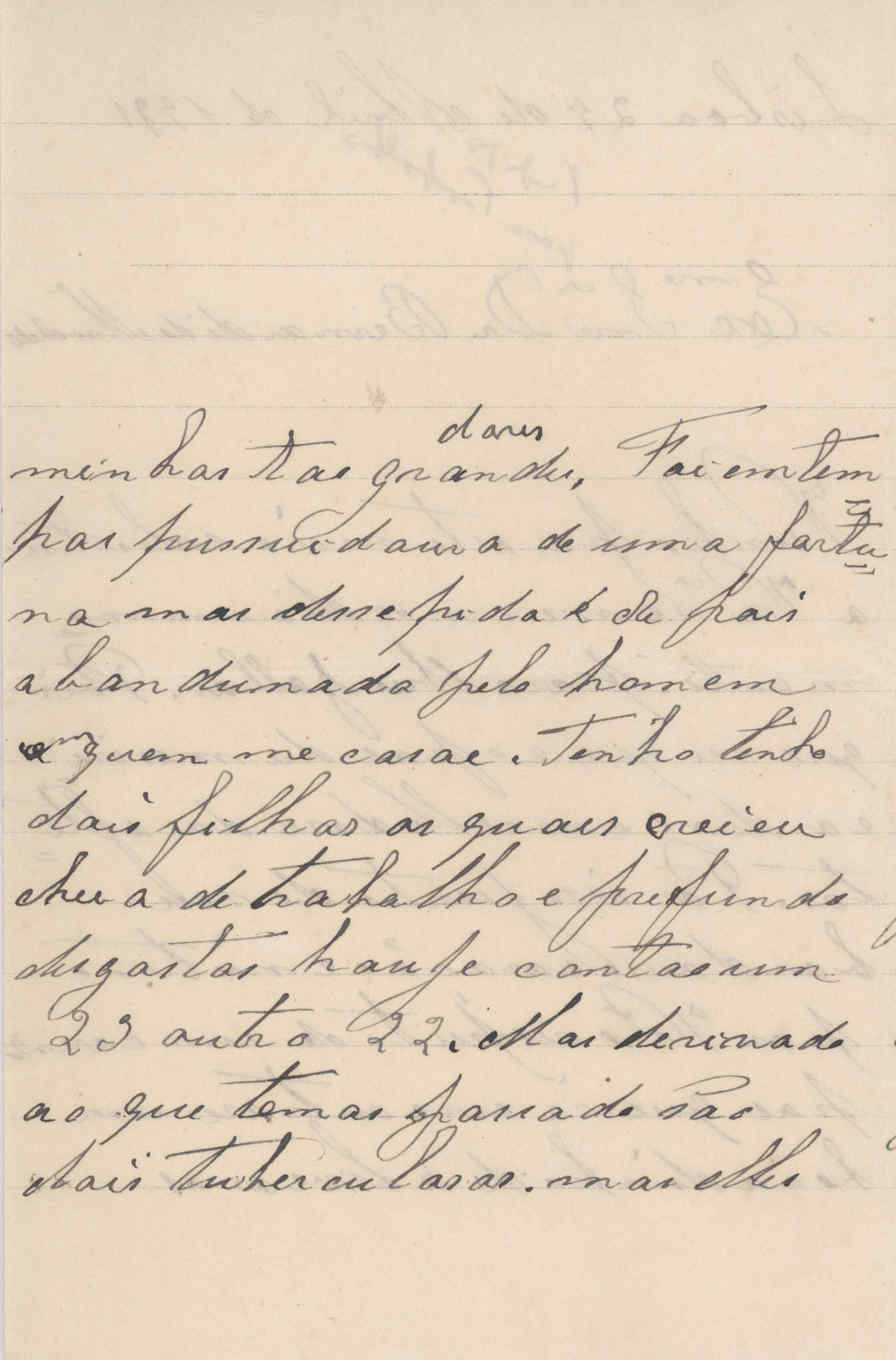 dores
minhas tao grandes, Foi em tem
pos pussuidoura de uma fortu
na mas dessepida e de pois
abandunada pelo homem
quem me casae. Tenho tenho
dois filhos os quaes creieu
cheia de trabalho e prefundo
desgostos houje contao um
23 outro 22. Mas derivado
ao que temos passado sao
dois tuberculosos. mas elles